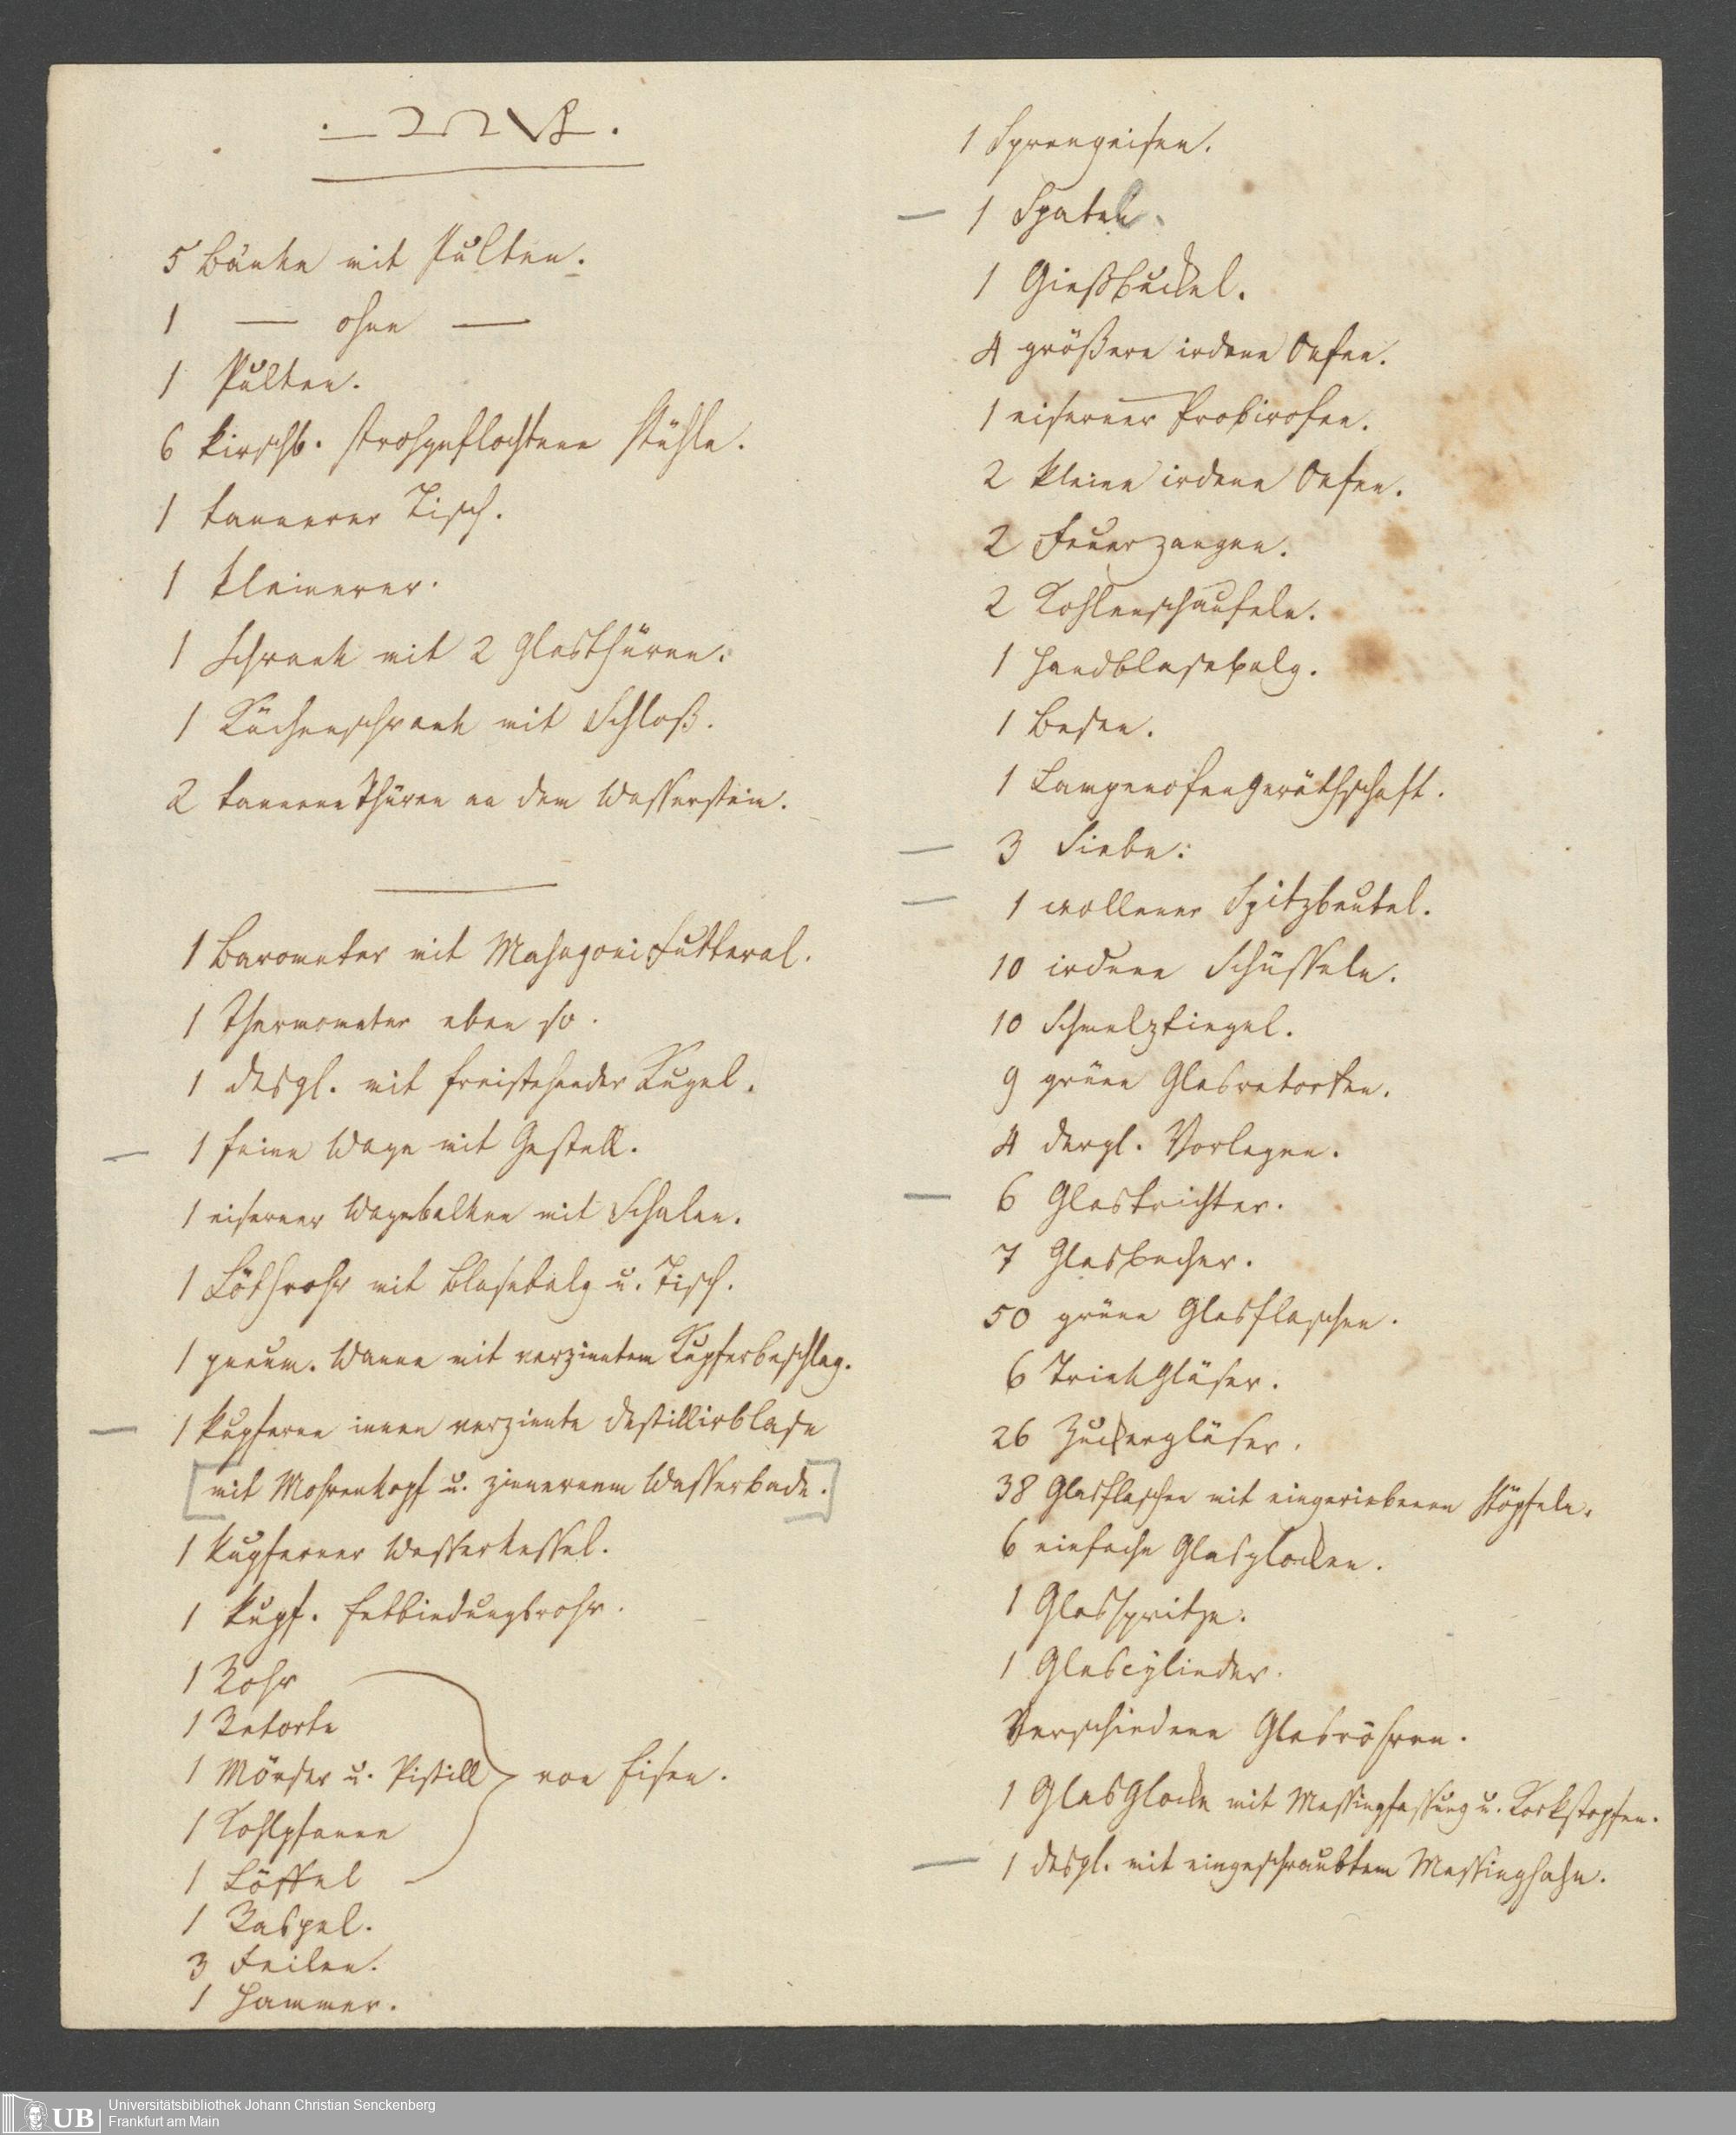 5 Bänke mit Pulten.
1 — ohne —
1 Pulten.
6 kirschb. strohgeflochtene Stühle.
1 tannener Tisch.
1 kleinerer.
1 Schrank mit 2 Glasthüren.
1 Küchenschrank mit Schloß.
2 tannene Thüren an dem Wasserstein.
1 Barometer mit Mahagoni Futteral.
1 Thermometer eben so.
1 desgl. mit freistehender Kugel.
1 feine Wage mit Gestell.
1 eiserner Wagebalken mit Schalen.
1 Löthrohr mit Blasebalg u. Tisch.
1 pneum. Wanne mit verzinntem Kupferbeschlag.
1 kupferne innen verzinnte Destillirblase
[mit Mohrenkopf u. zinnernem Wasserbade.]
1 kupferner Wasserkessel.
1 kupf. Entbindungsrohr.
1 Rohr
1 Retorte
1 Mörser u. Pistill von Eisen.
1 Kohlpfanne
1 Löffel
1 Raspel.
3 Feilen.
1 Hammer.
1 Sprengeisen.
1 Spatel.
1 Gießbuckel.
4 größere irdene Oefen.
1 eiserner Probirofen.
2 kleine irdene Oefen.
2 Feuerzangen.
2 Kohlenschaufeln.
1 Handblasebalg.
1 Besen.
1 Lampenofengeräthschaft.
3 Siebe:
1 wollener Spitzbeutel.
10 irdene Schüsseln.
10 Schmelztiegel.
9 grüne Glasretorten.
4 dergl. Vorlagen.
6 Glastrichter.
7 Glasbecher.
50 grüne Glasflaschen.
6 Trinkgläser.
26 Zuckergläser.
38 Glasflaschen mit eingeriebenen Stöpseln.
6 einfache Glasglocken.
1 Glasspritze.
1 Glascylinder.
Verschiedene Glasröhren.
1 Glasglocke mit Messingfassung u. Korkstopfen.
1 desgl. mit eingeschraubtem Messinghahn.
UB Universitätsbibliothek Johann Christian Senckenberg
Frankfurt am Main